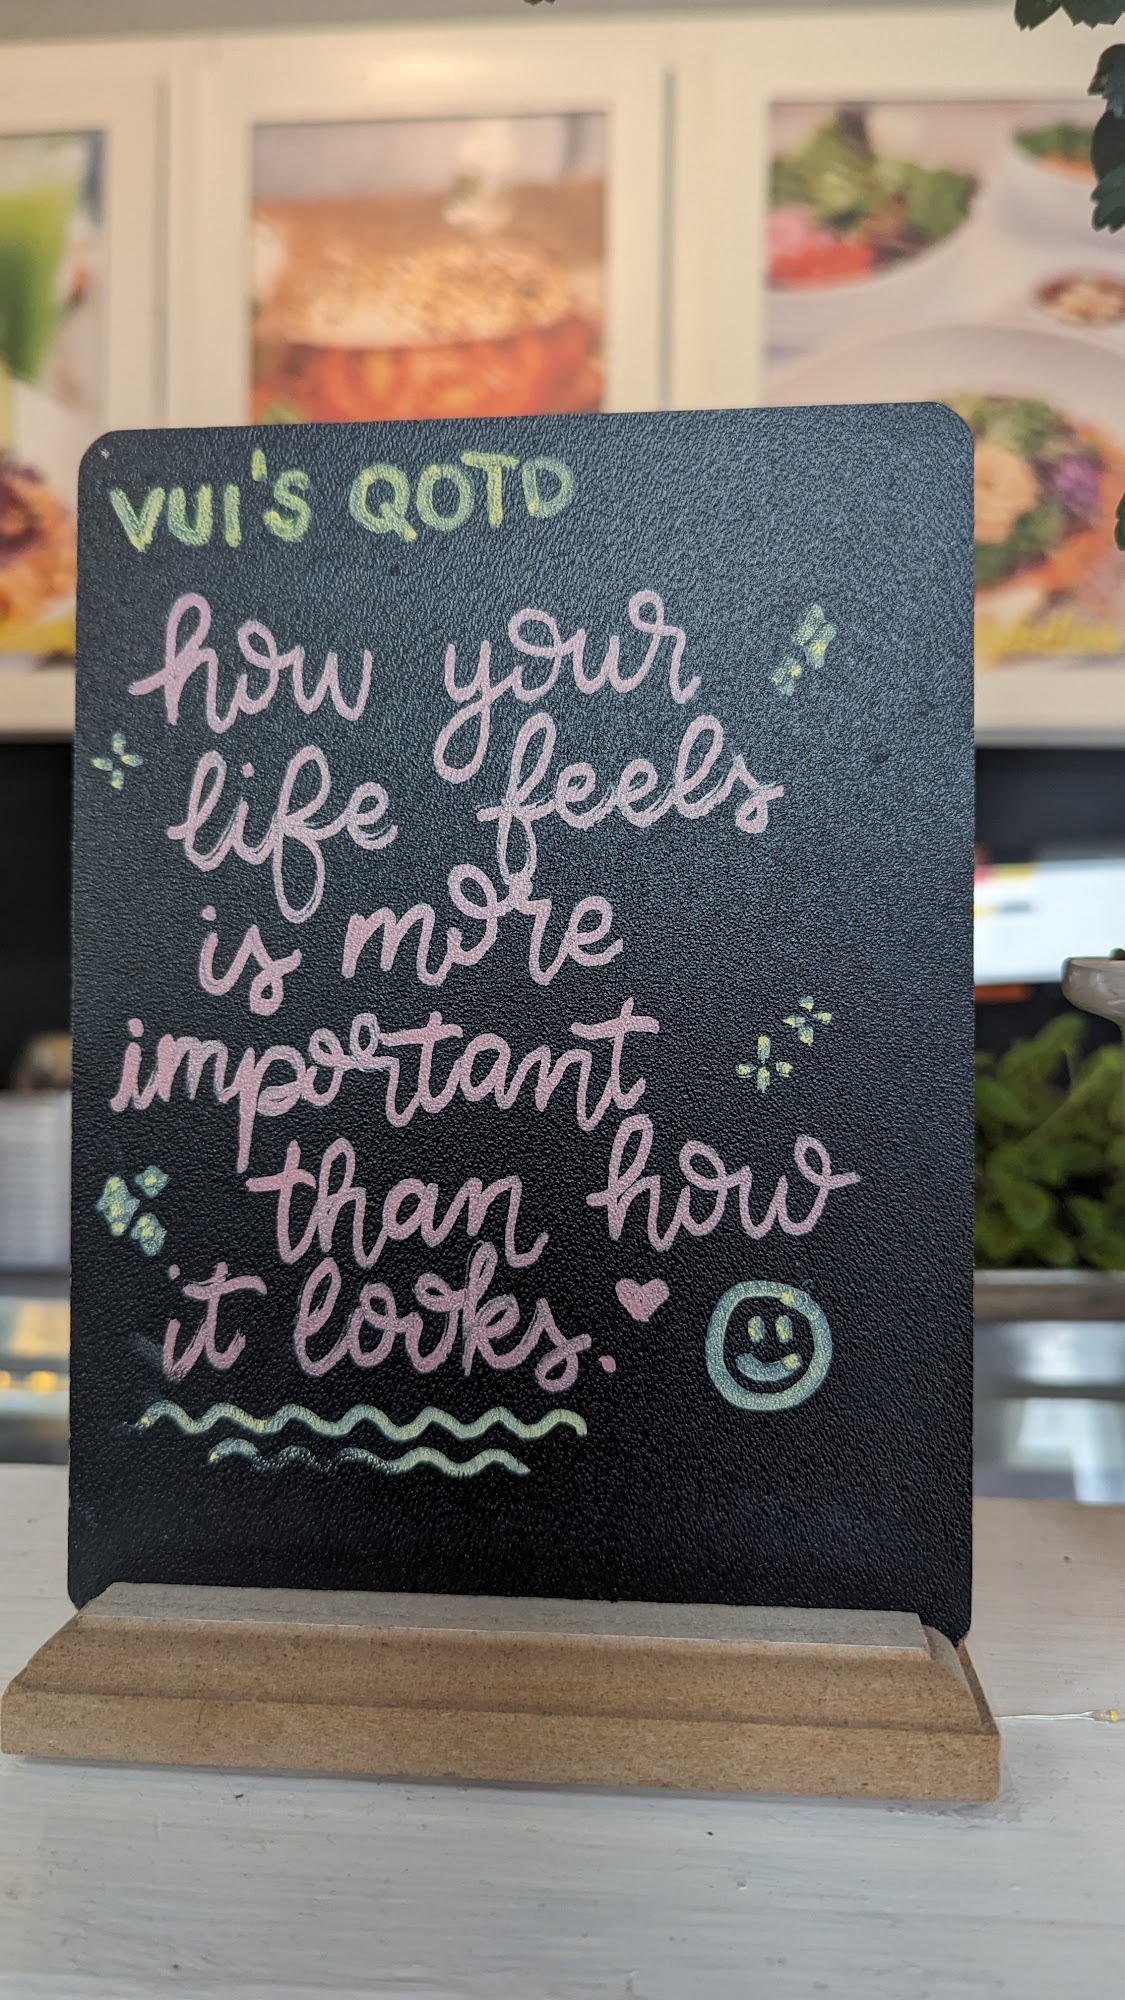 VUI'S QOTD
how your
life feels
is more
important
than how
it looks.